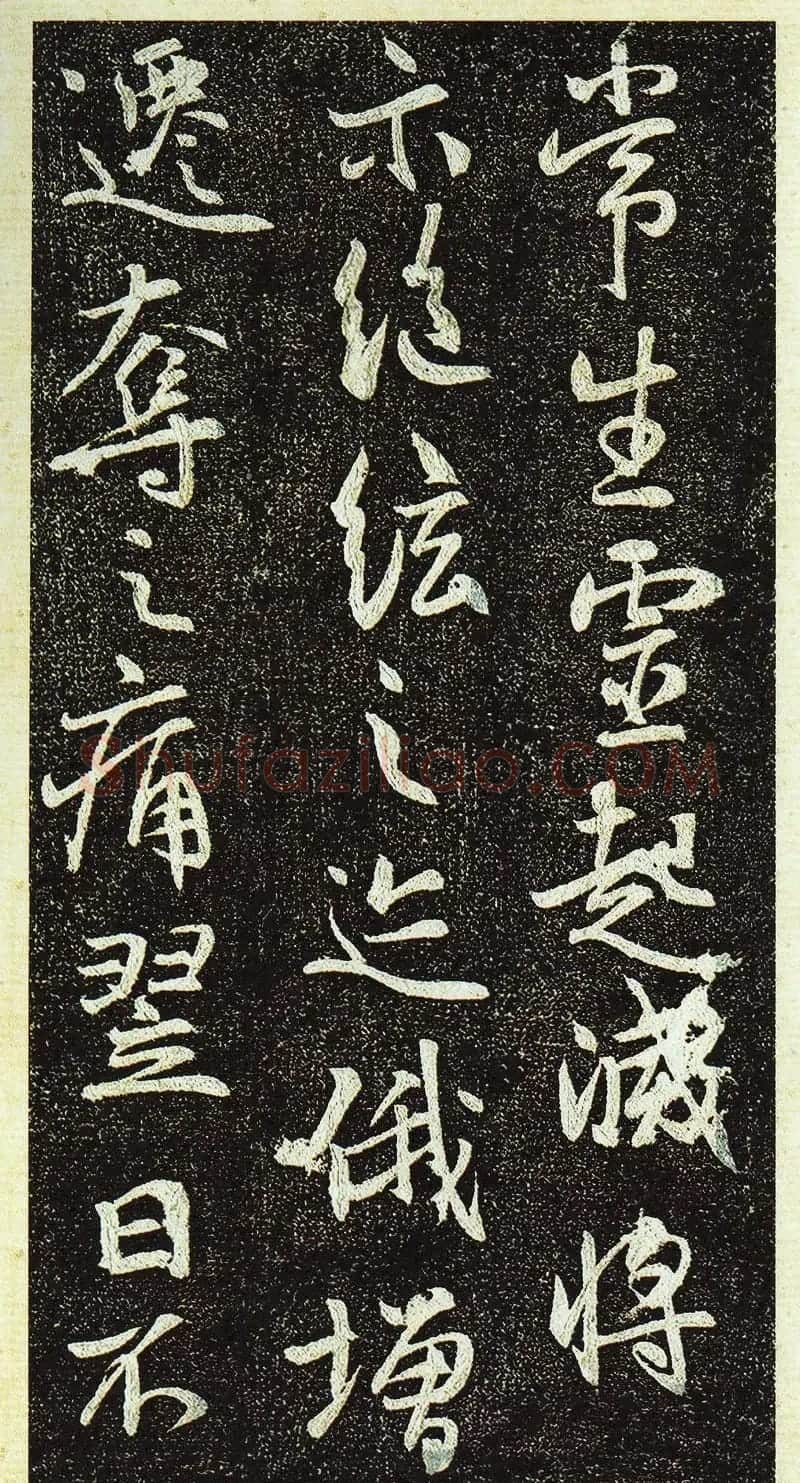 常生靈起滅將
示絕絃之迹俄增
遷奪之痛翌日不
Shufaziliao.COM